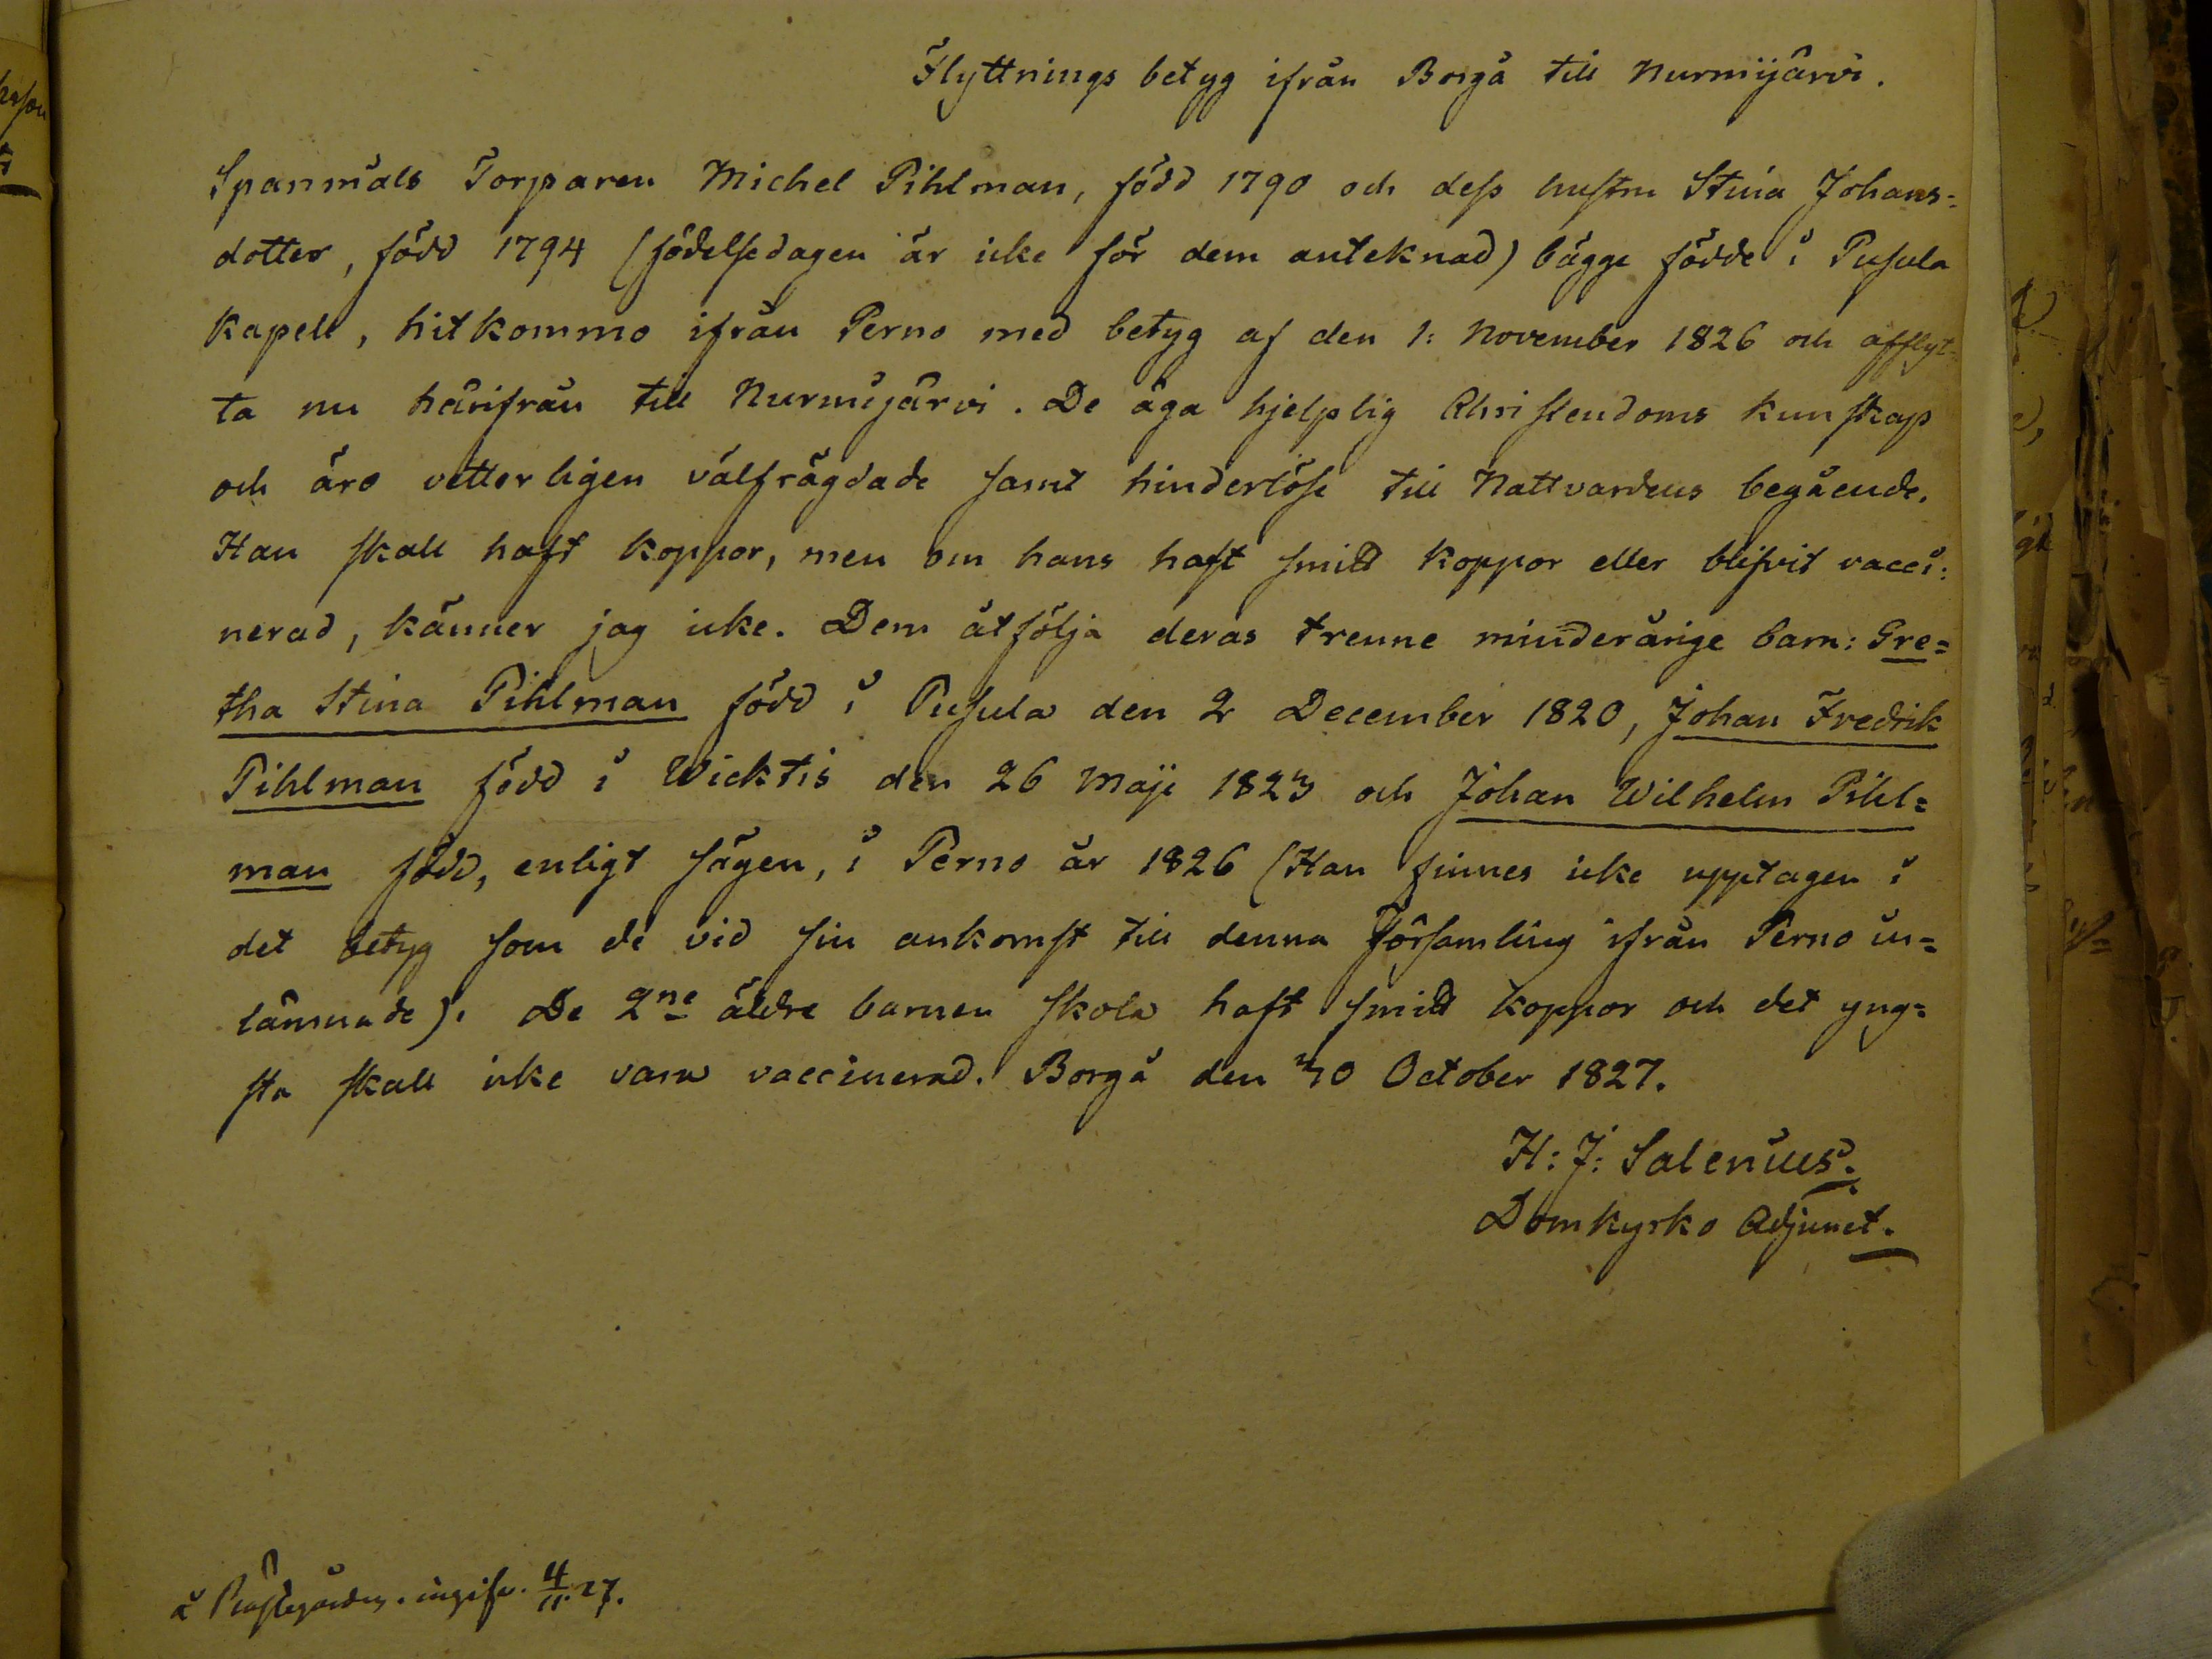 Flyttnings betyg ifrån Borgå till Nurmijärvi.
Spanmåls Torparen Michel Pihlman, född 1790 och dess hustru Stina Johans=
dotter, född 1794 (födelsedagen är icke för dem anteknad) bägge födde i Pusula
Kapell, hitkommo ifrån Perno med betyg af den 1: November 1826 och afflyt=
ta nu härifrån till Nurmijärvi. De äga hjelplig Christendoms kunskap
och äro vetterligen välfrägdade samt hinderlöse till Nattvardens begående.
Han skall haft koppor, men om hans haft smitt koppor eller blifvit vacci:
nerad, känner jag icke. Dem åtfölja deras trenne minderårige barn: Gre=
tha Stina Pihlman född i Pusula den 2 December 1820, Johan Fredrik
Pihlman född i Wicktis den 26 Maji 1823 och Johan Wilhelm Pihl=
man född, enligt sägen, i Perno år 1826 (Han finnes icke upptagen i
det betyg som de vid sin ankomst till denna Församling ifrån Perno in=
lämnade). De 2ne äldre barnen skola haft smitt koppor och det yng=
sta skall icke vara vaccinerad. Borgå den 30 October 1827.
H: J: Salenius.
Domkyrko Adjunct.
å Prästegården. ingifv. 4/11. 27.